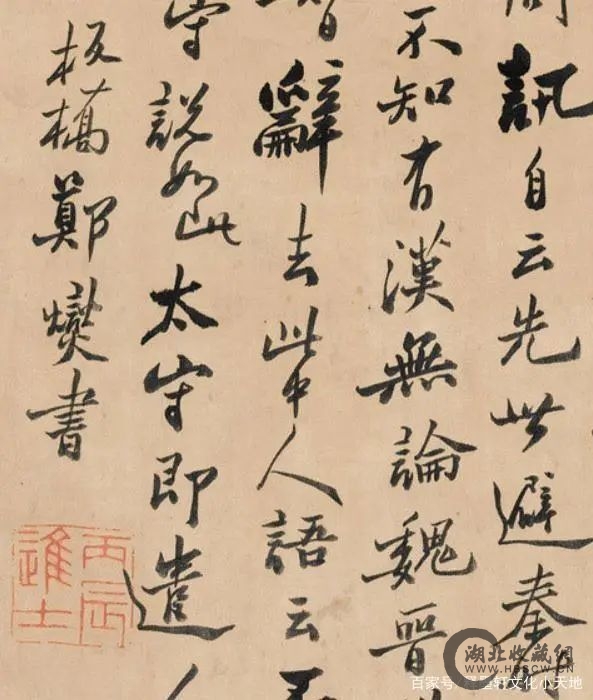 訊自云先世避秦
不知有漢無論魏晉
皆辭去此中人語云不
守說如此太守即遣人
板橋鄭燮書
丙辰進士
湖北收藏网
百家号
轩文化小天地